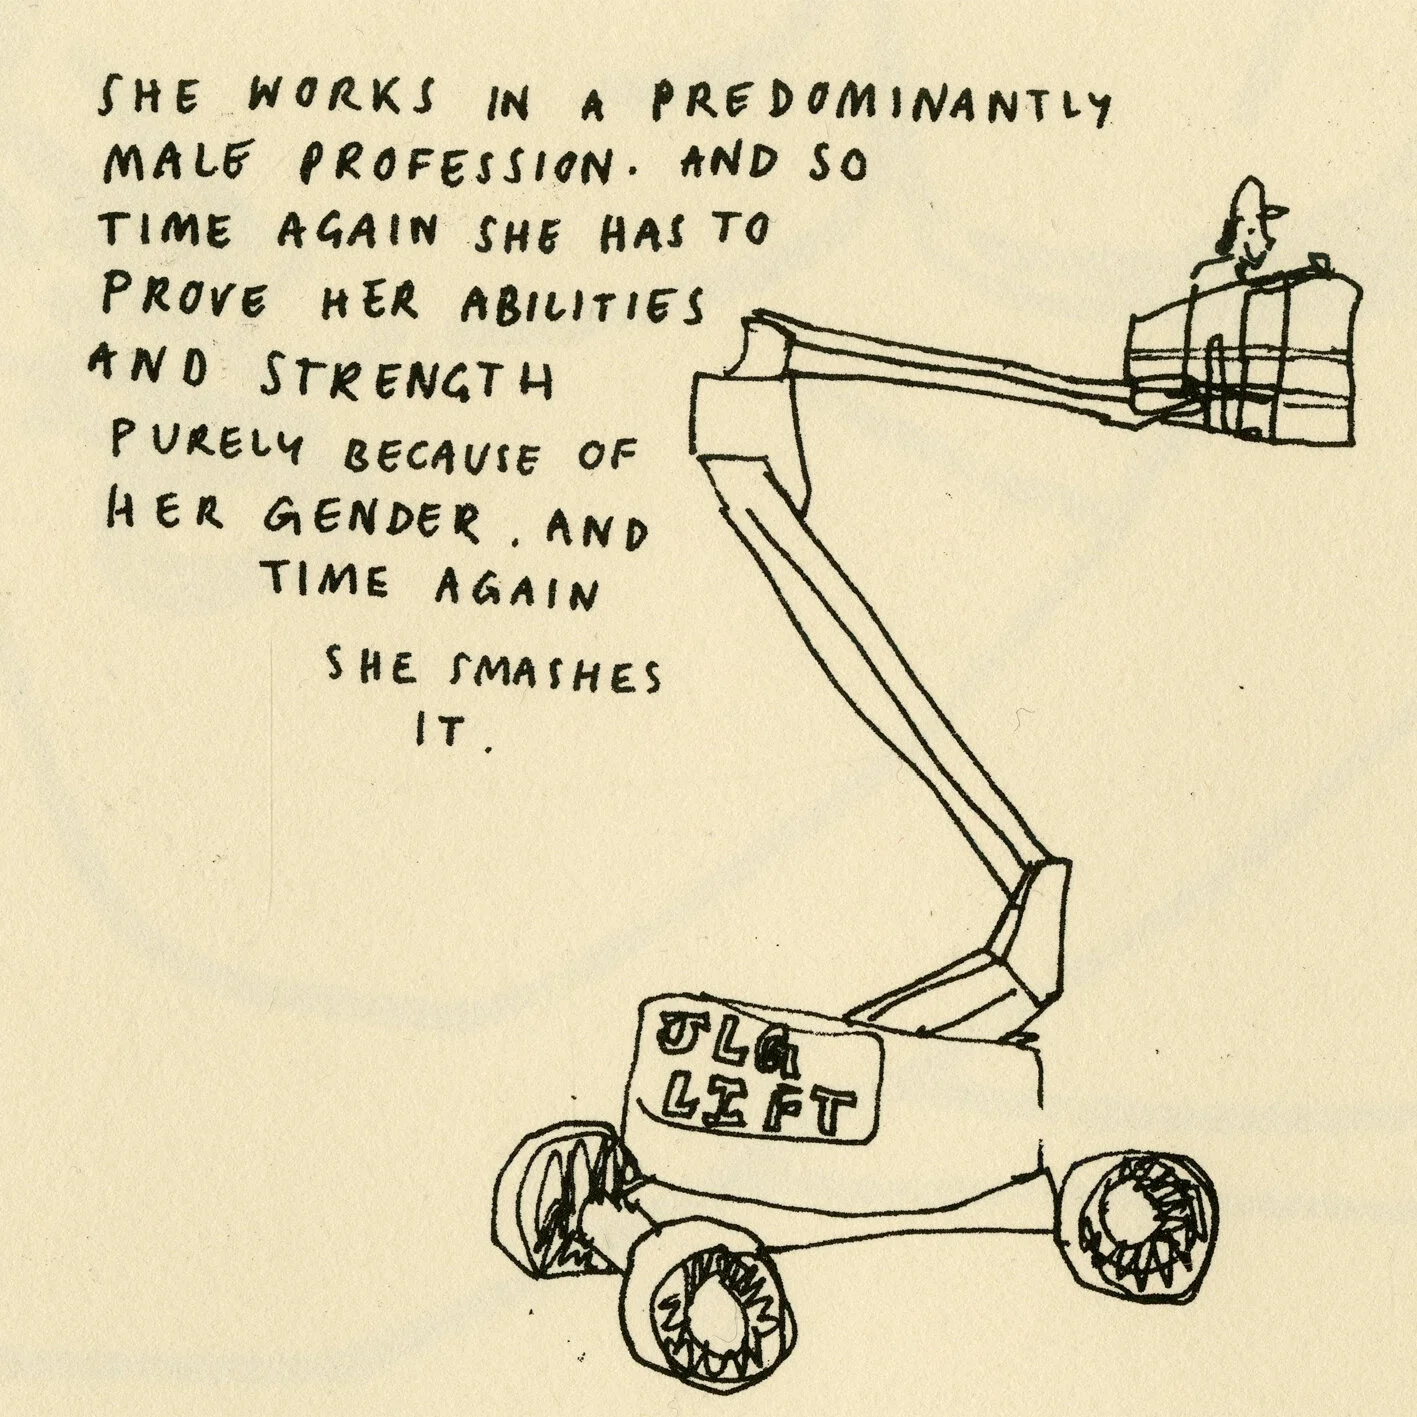 SHE WORKS IN A PREDOMINANTLY
MALE PROFESSION. AND SO
TIME AGAIN SHE HAS TO
PROVE HER ABILITIES
AND STRENGTH
PURELY BECAUSE OF
HER GENDER. AND
TIME AGAIN
SHE SMASHES
IT.
JLG
LIFT